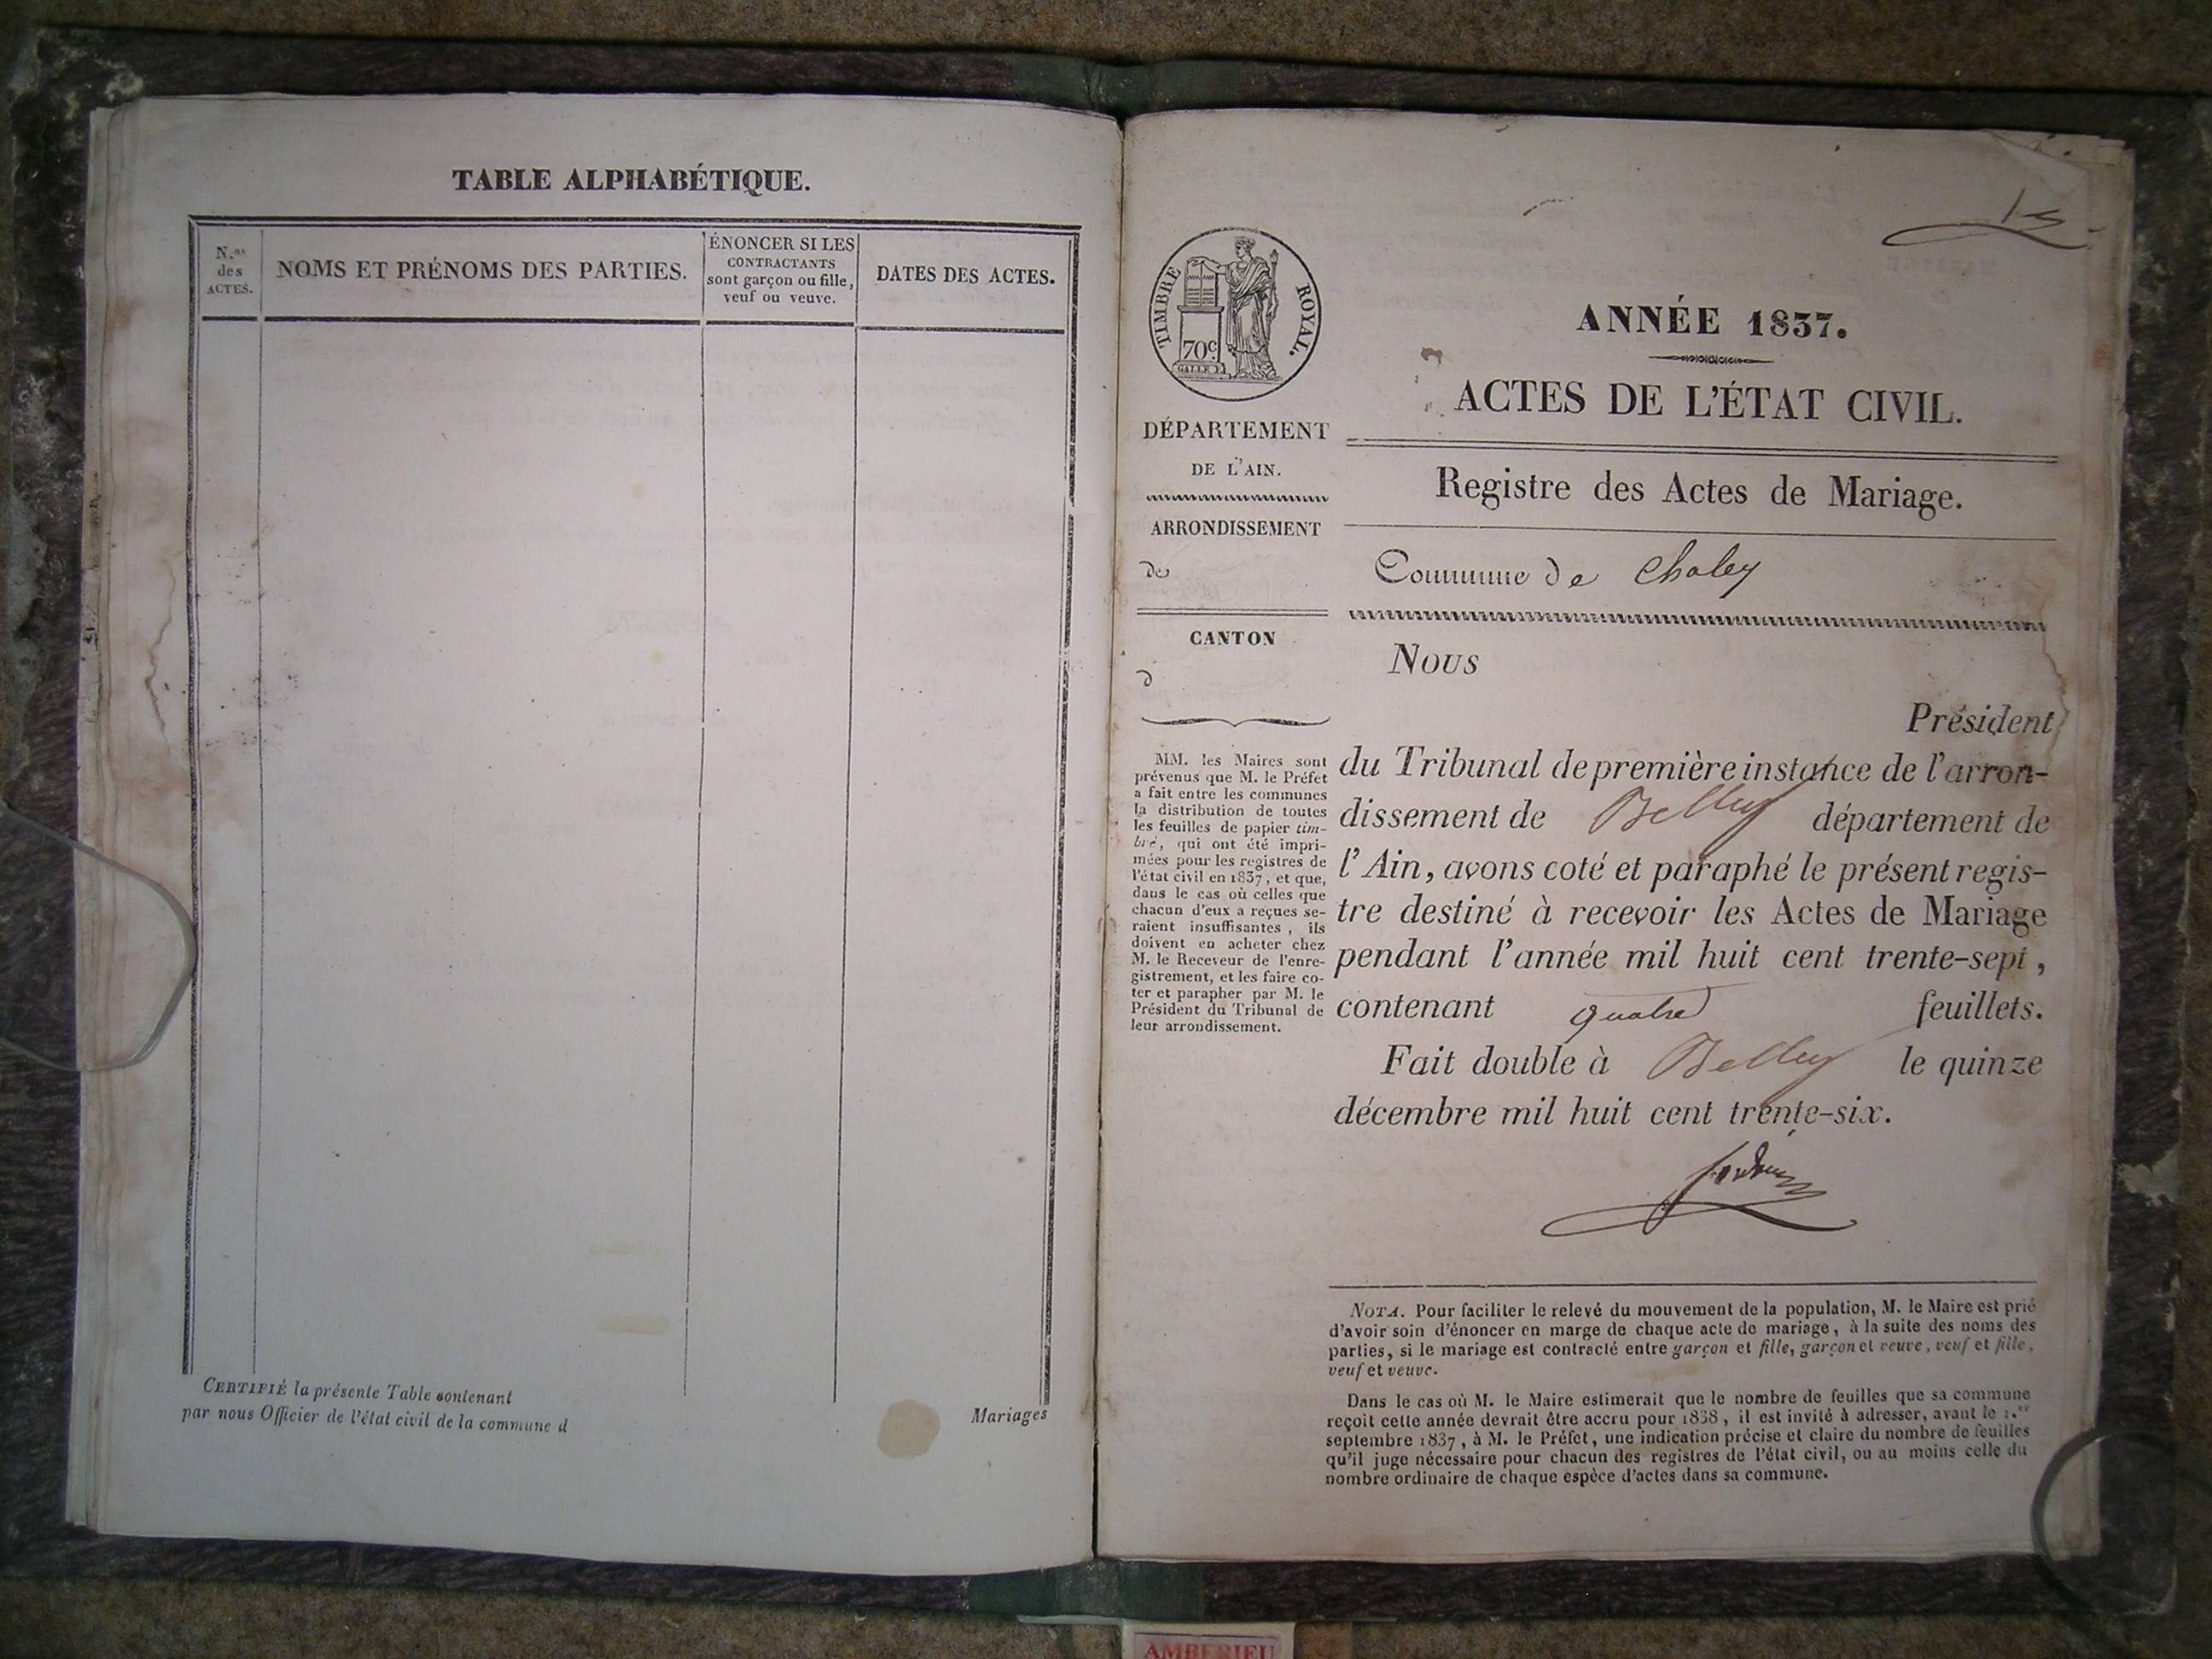 TABLE ALPHABÉTIQUE.
N.os
des
ACTES.
NOMS ET PRÉNOMS DES PARTIES.
ÉNONCER SI LES
CONTRACTANTS
sont garçon ou fille,
veuf ou veuve.
DATES DES ACTES.
CERTIFIÉ la présente Table contenant
Mariages
par nous Officier de l'état civil de la commune d
TIMBRE ROYAL.
70c.
GALLE F.
DÉPARTEMENT
DE L'AIN.
ARRONDISSEMENT
de
CANTON
d
MM. les Maires sont
prévenus que M. le Préfet
a fait entre les communes
la distribution de toutes
les feuilles de papier tim-
bré, qui ont été impri-
mées pour les registres de
l'état civil en 1837, et que,
dans le cas où celles que
chacun d'eux a reçues se-
raient insuffisantes, ils
doivent en acheter chez
M. le Receveur de l'enre-
gistrement, et les faire co-
ter et parapher par M. le
Président du Tribunal de
leur arrondissement.
ANNÉE 1837.
ACTES DE L'ÉTAT CIVIL.
Registre des Actes de Mariage.
Commune de Chaley
Nous
Président
du Tribunal de première instance de l'arron-
dissement de Belley département de
l'Ain, avons coté et paraphé le présent regis-
tre destiné à recevoir les Actes de Mariage
pendant l'année mil huit cent trente-sept,
contenant quatre feuillets.
Fait double à Belley le quinze
décembre mil huit cent trente-six.
NOTA. Pour faciliter le relevé du mouvement de la population, M. le Maire est prié
d'avoir soin d'énoncer en marge de chaque acte de mariage, à la suite des noms des
parties, si le mariage est contracté entre garçon et fille, garçon et veuve, veuf et fille,
veuf et veuve.
Dans le cas où M. le Maire estimerait que le nombre de feuilles que sa commune
reçoit cette année devrait être accru pour 1838, il est invité à adresser, avant le 1.er
septembre 1837, à M. le Préfet, une indication précise et claire du nombre de feuilles
qu'il juge nécessaire pour chacun des registres de l'état civil, ou au moins celle du
nombre ordinaire de chaque espèce d'actes dans sa commune.
AMBERIEU